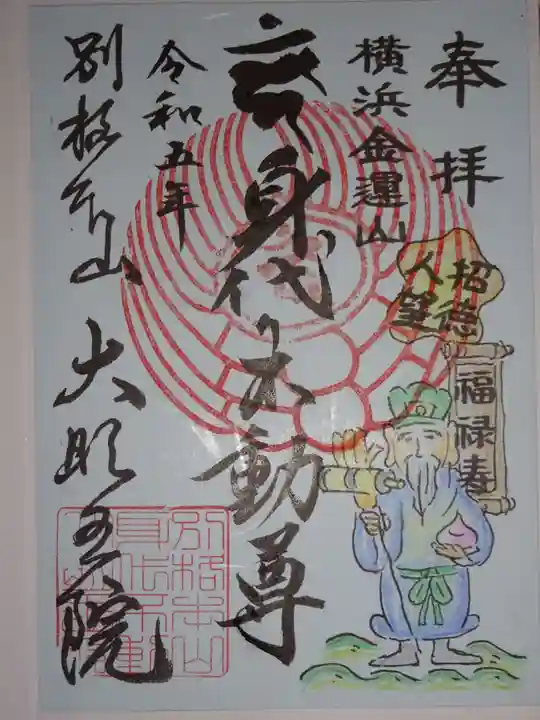 奉拝
横浜金運山
身代り不動尊
令和五年
別格本山 大明王院
招徳人望
福禄寿
別格本山